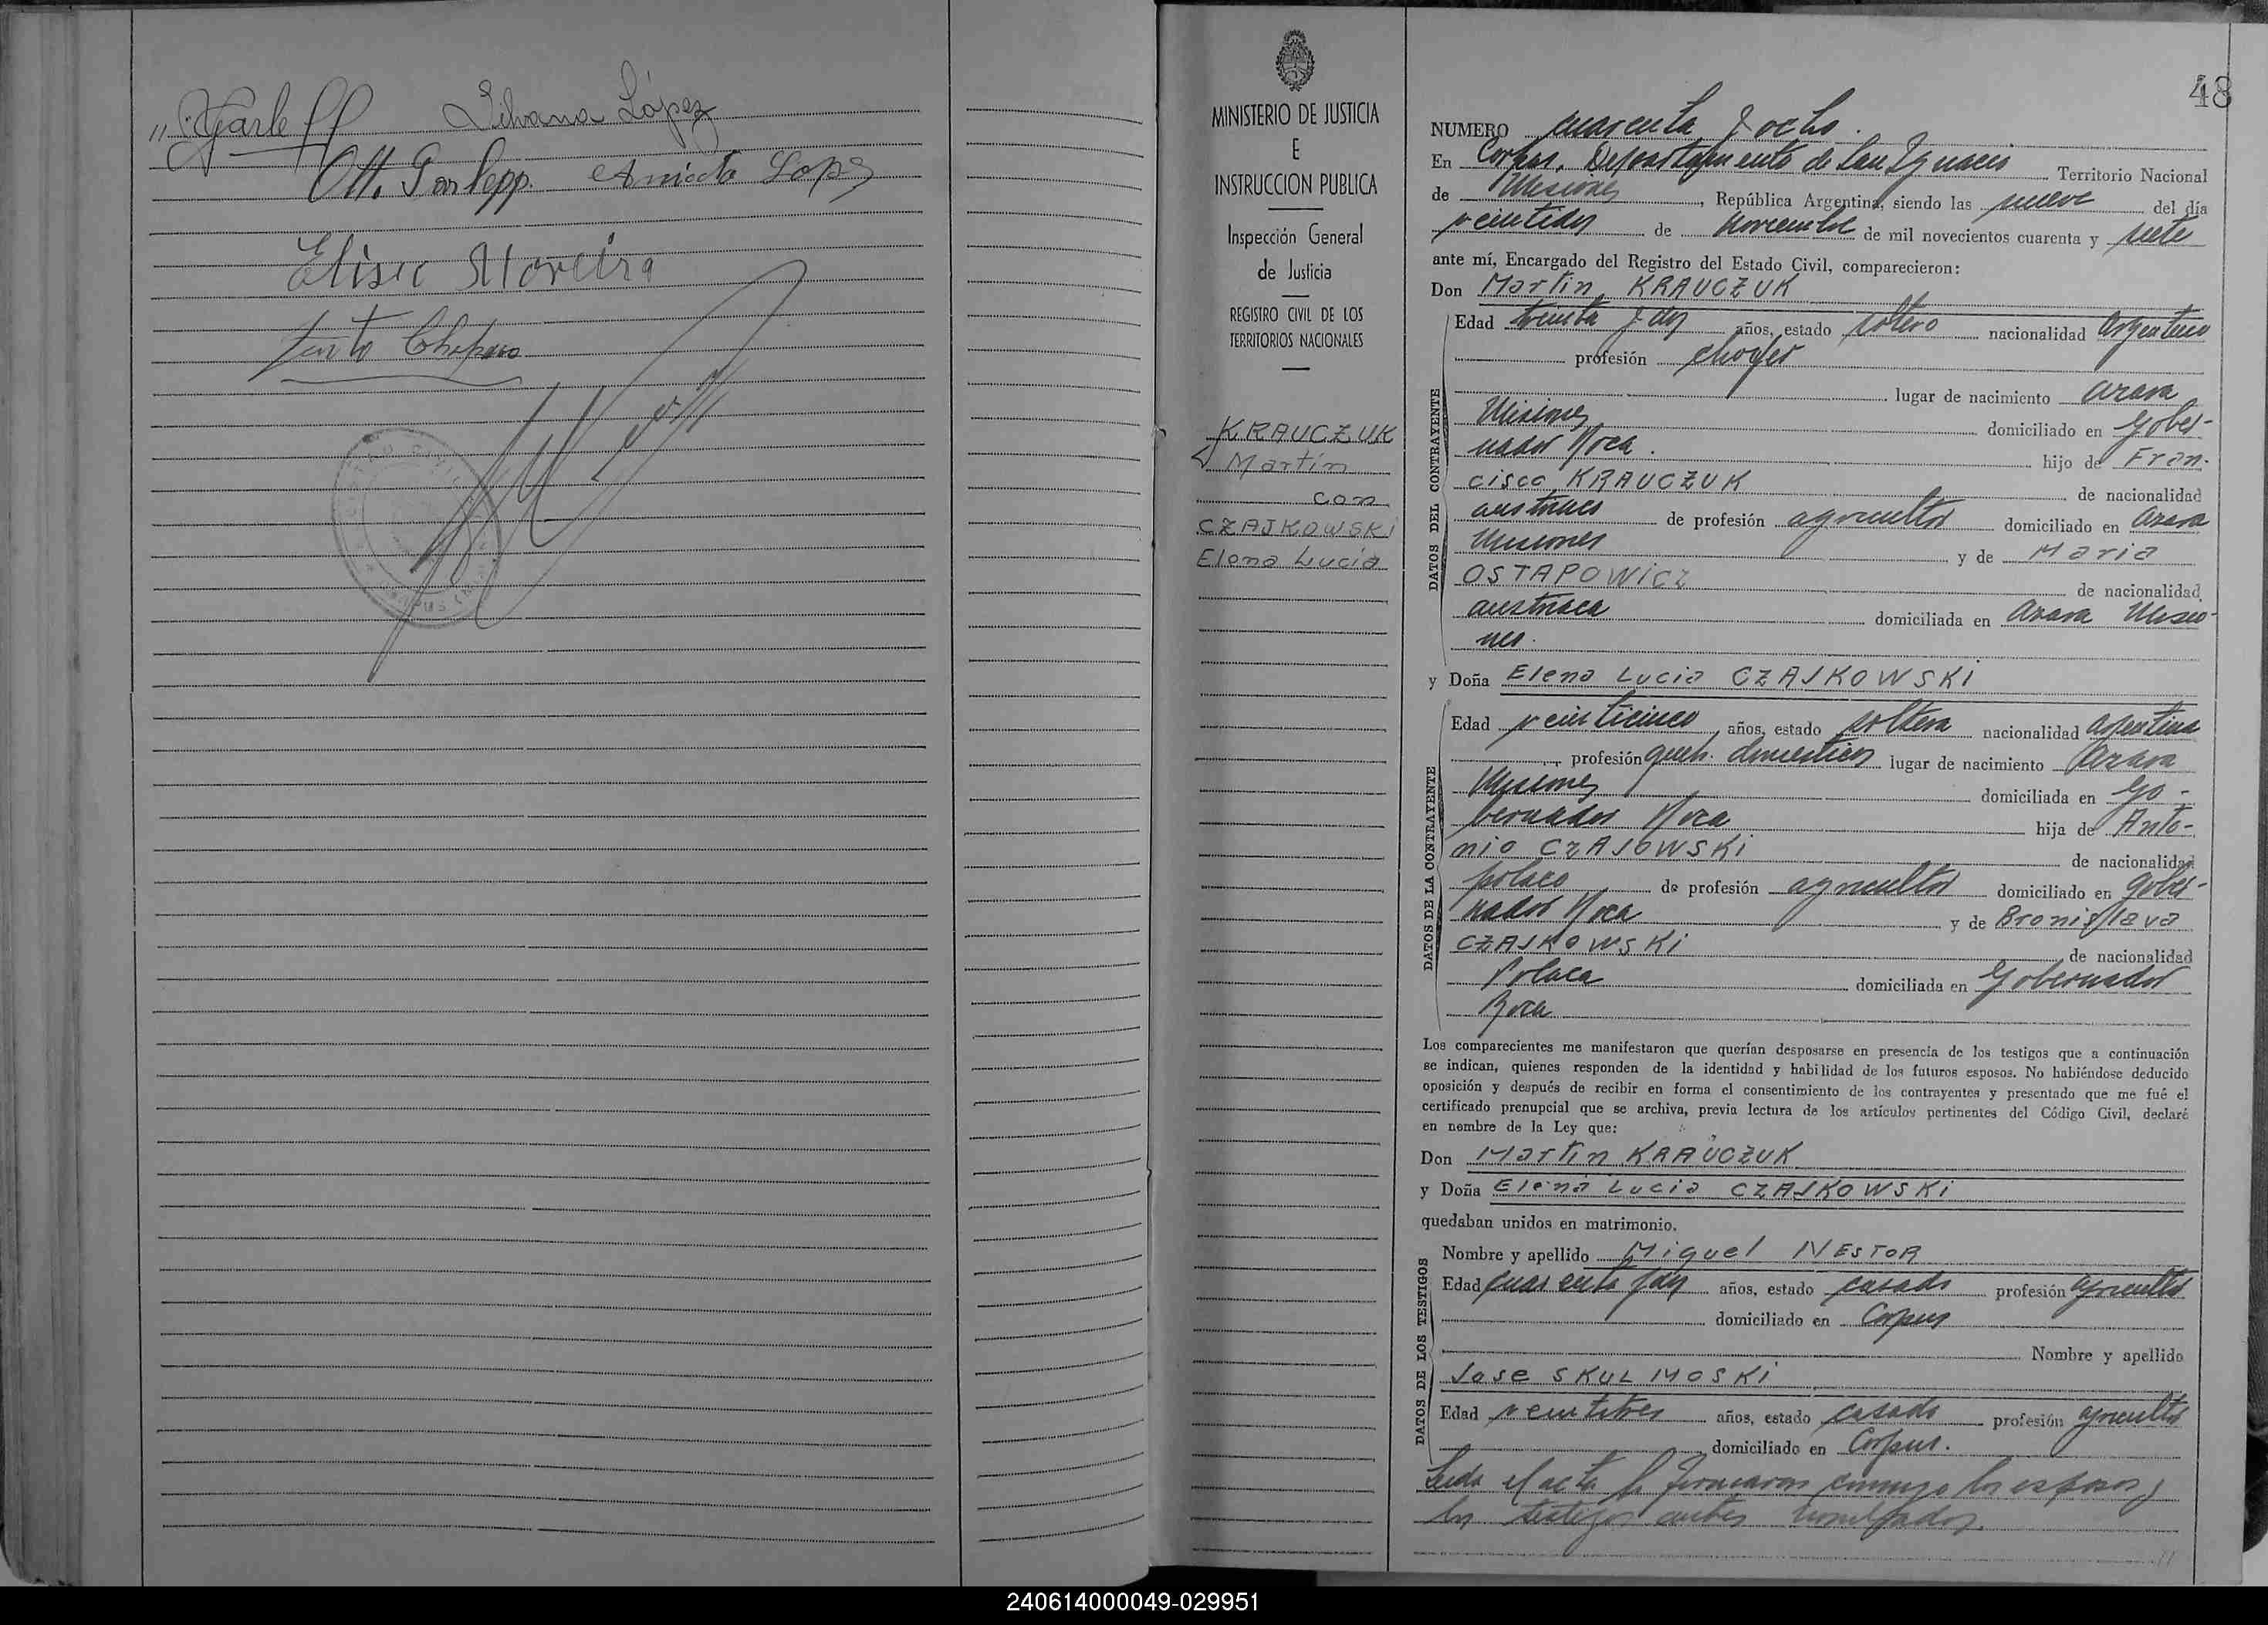 Silvana López
Aniceto Lopez
Elisic Moreira
48
MINISTERIO DE JUSTICIA
E
INSTRUCCION PUBLICA
Inspección General
de Justicia
REGISTRO CIVIL DE LOS
TERRITORIOS NACIONALES
KRAUCZUK
Martin
con
CZAJKOWSKI
Elena Lucia
NUMERO cuarenta y ocho.
En Corpus, Departamento de San Ignacio Territorio Nacional
de Misiones, República Argentina, siendo las nueve del día
veintidos de noviembre de mil novecientos cuarenta y siete
ante mí, Encargado del Registro del Estado Civil, comparecieron:
Don Martin KRAUCZUK
DATOS DEL CONTRAYENTE
Edad treinta y dos años, estado soltero nacionalidad argentino
profesión chofer
lugar de nacimiento Azara
Misiones domiciliado en Gober-
nador Roca. hijo de Fran-
cisco KRAUCZUK de nacionalidad
austriaco de profesión agricultor domiciliado en Azara
Misiones y de Maria
OSTAPOWICZ de nacionalidad
austriaca domiciliada en Azara Misio-
nes.
y Doña Elena Lucia CZAJKOWSKI
DATOS DE LA CONTRAYENTE
Edad veinticinco años, estado soltera nacionalidad argentina
profesión queh. domesticos lugar de nacimiento Azara
Misiones domiciliada en Go-
bernador Roca hija de Anto-
nio CZAJOWSKI de nacionalidad
polaco de profesión agricultor domiciliado en Gober-
nador Roca y de Bronislava
CZAJKOWSKI de nacionalidad
Polaca domiciliada en Gobernador
Roca
Los comparecientes me manifestaron que querían desposarse en presencia de los testigos que a continuación
se indican, quienes responden de la identidad y habilidad de los futuros esposos. No habiéndose deducido
oposición y después de recibir en forma el consentimiento de los contrayentes y presentado que me fué el
certificado prenupcial que se archiva, previa lectura de los artículos pertinentes del Código Civil, declaré
en nombre de la Ley que:
Don Martin KRAUCZUK
y Doña Elena Lucia CZAJKOWSKI
quedaban unidos en matrimonio.
DATOS DE LOS TESTIGOS
Nombre y apellido Miguel NESTOR
Edad cuarenta y dos años, estado casado profesión agricultor
domiciliado en Corpus
Nombre y apellido
Jose SKULMOSKI
Edad veintitres años, estado casado profesión agricultor
domiciliado en Corpus.
Leida el acta la firmaron conmigo los esposos y
los testigos antes nombrados.
240614000049-029951